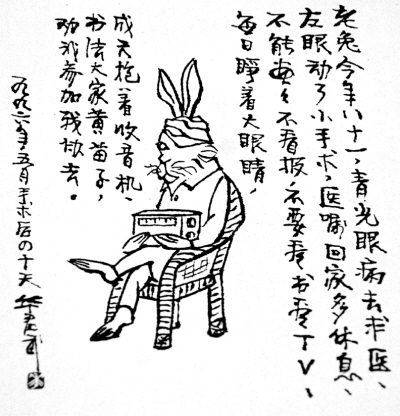 老兔今年八十一，青光眼病去求医、
左眼动了小手术，医嘱回家多休息、
不能画々不看报，不要看书看TV、
每日睁着大眼睛，
成天抱着收音机、
书法大家黄苗子，
劝我参加残协去。
一九九六年五月手术后の十天 华君武